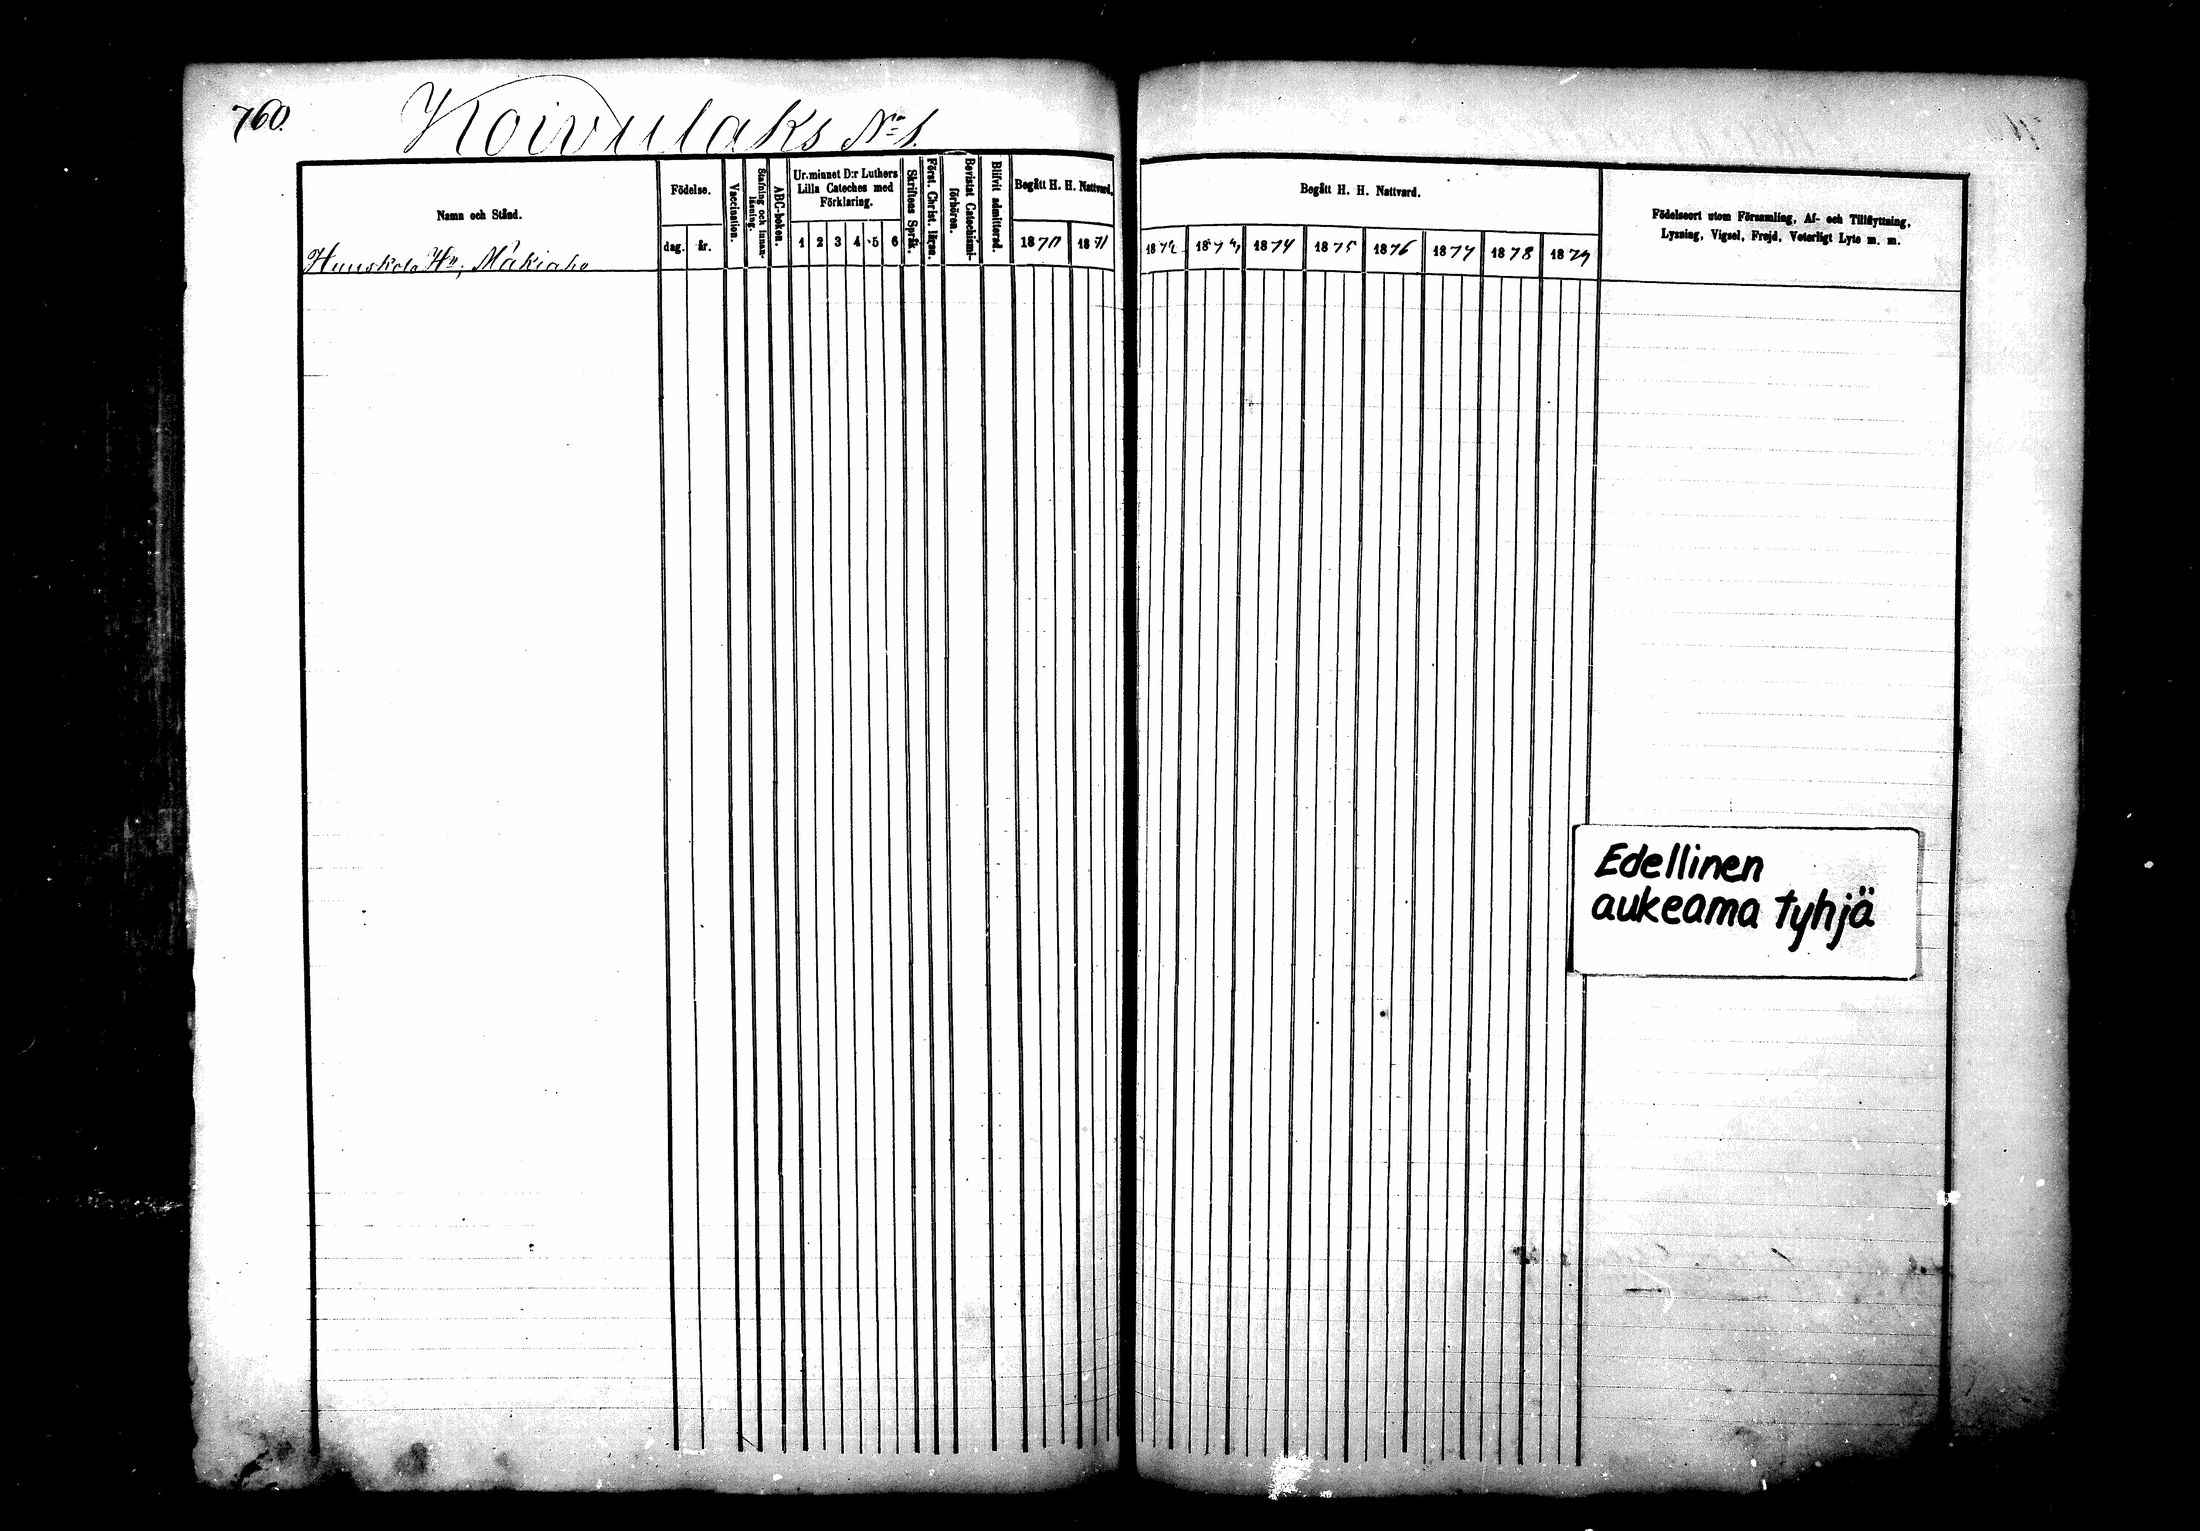 760.
Koivulaks No 1.
Namn och Stånd.
Födelse.
dag. år.
Vaccination.
Stafning och innanläsning.
ABC-boken.
Ur minnet D:r Luthers
Lilla Cateches med
Förklaring.
1 2 3 4 5 6
Skriftens Språk.
Först. Christ. läran.
Bevistat Catechismi-
förhören.
Blifvit admitterad.
Begått H. H. Nattvard.
1870 1871
Begått H. H. Nattvard.
1872 1873 1874 1875 1876 1877 1878 1879
Födelseort utom Församling, Af- och Tillflyttning,
Lysning, Vigsel, Frejd, Veterligt Lyte m. m.
Mäkiaho
Edellinen
aukeama tyhjä